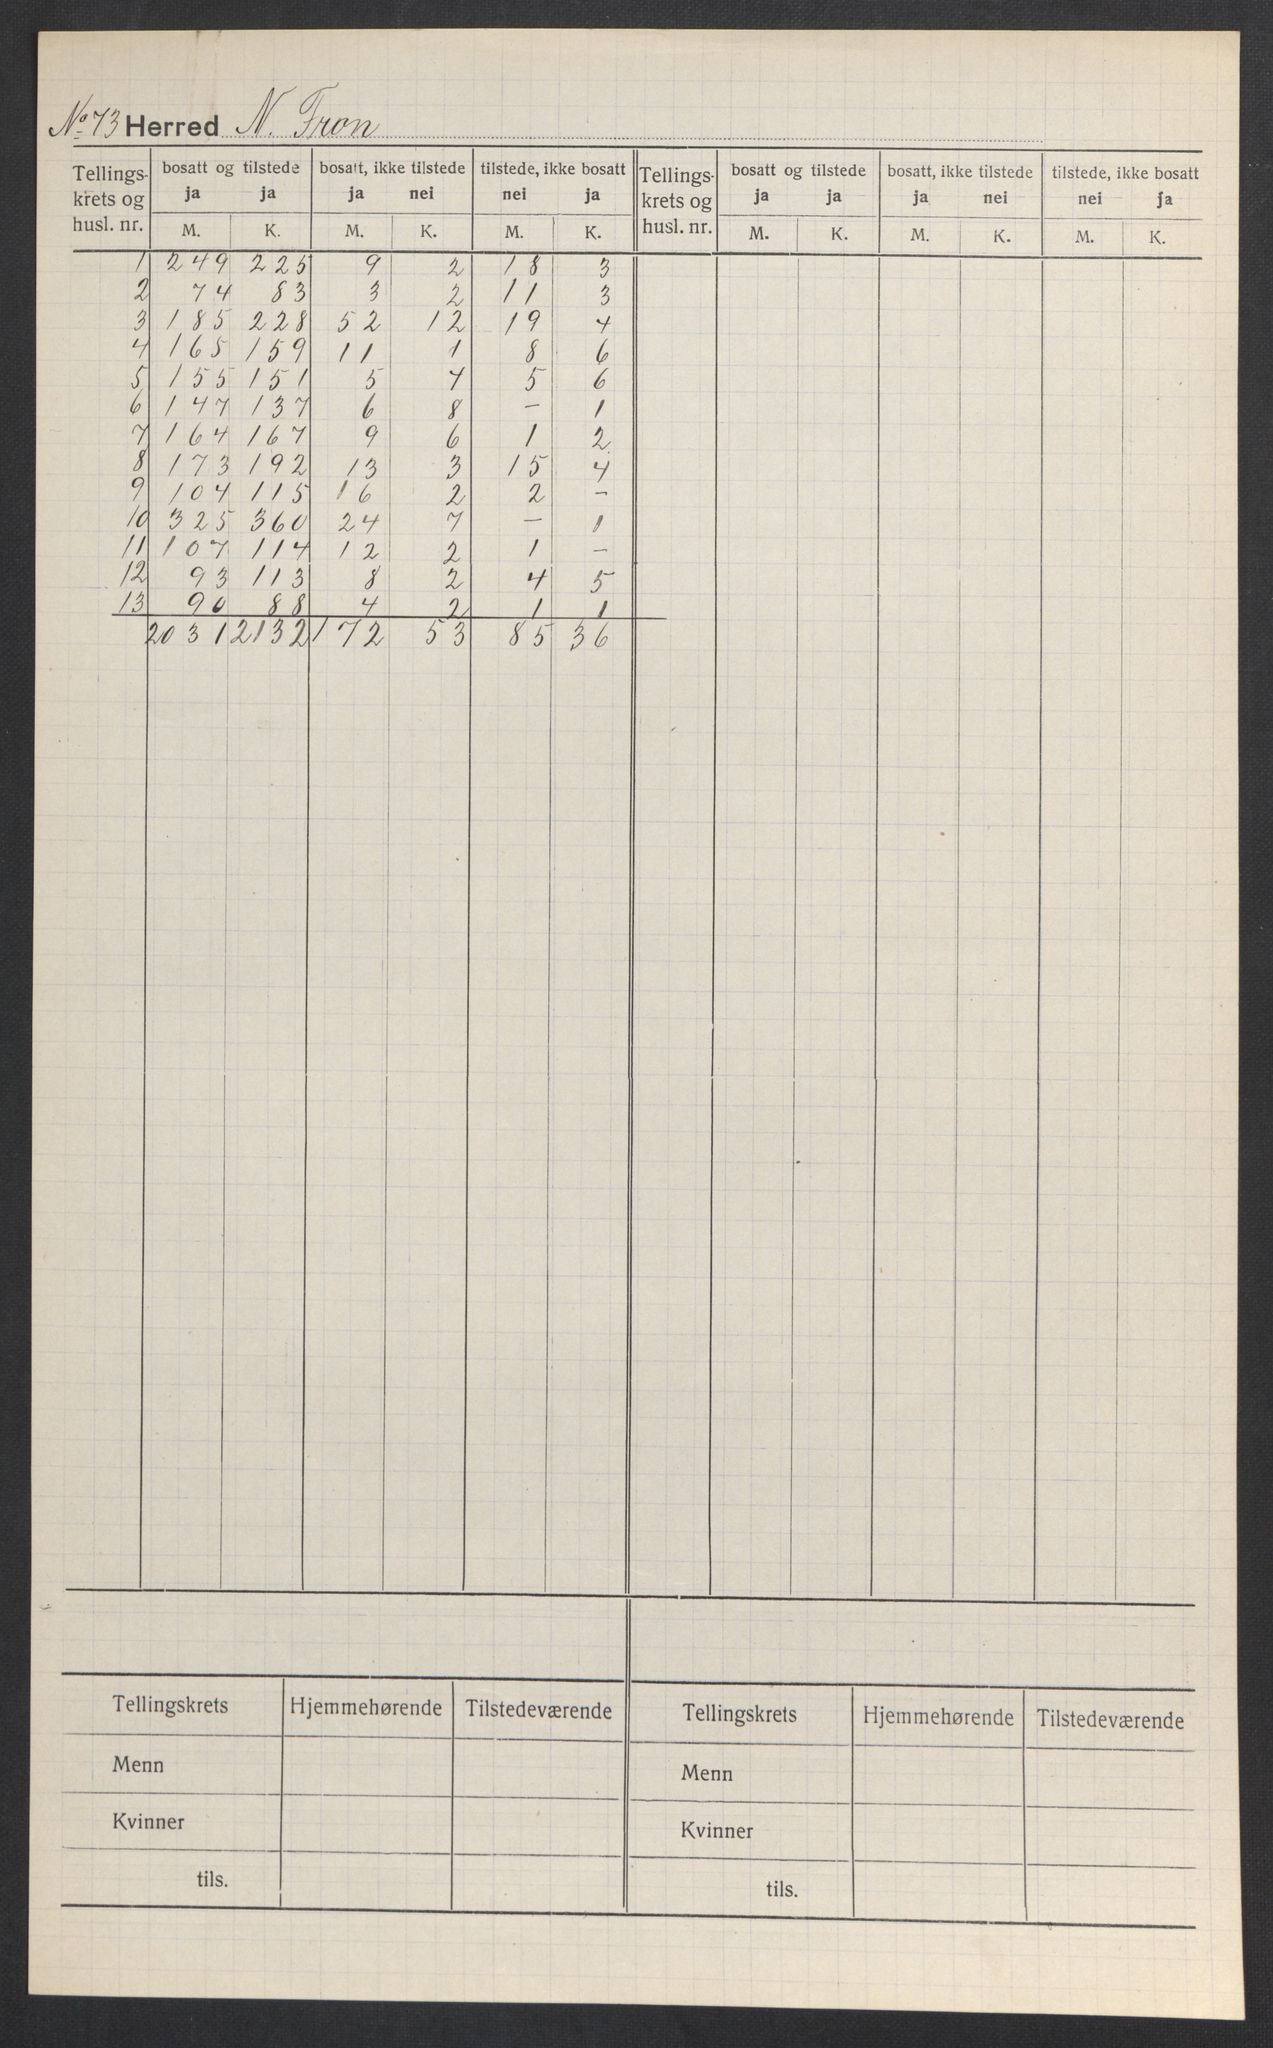 No. 73 Herred N. Fron
Tellings- krets og husl. nr. | bosatt og tilstede | bosatt, ikke tilstede | tilstede, ikke bosatt | Tellings- krets og husl. nr. | bosatt og tilstede | bosatt, ikke tilstede | tilstede, ikke bosatt
ja ja | ja nei | nei ja | ja ja | ja nei | nei ja
M. K. | M. K. | M. K. | M. K. | M. K. | M. K.
1 249 225 9 2 18 3
2 74 83 3 2 11 3
3 185 228 52 12 19 4
4 165 159 11 1 8 6
5 155 151 5 4 5 6
6 147 137 6 8 – 1
7 164 167 9 6 1 2
8 173 192 13 3 15 4
9 104 115 16 2 2 –
10 325 360 24 7 – 1
11 107 114 12 2 1 –
12 93 113 8 2 4 5
13 90 88 4 2 1 1
2031 2132 172 53 85 36
Tellingskrets | Hjemmehørende | Tilstedeværende | Tellingskrets | Hjemmehørende | Tilstedeværende
Menn | Menn
Kvinner | Kvinner
tils. | tils.